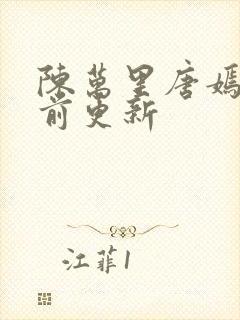 陳萬里唐嫣
前更新
江菲1